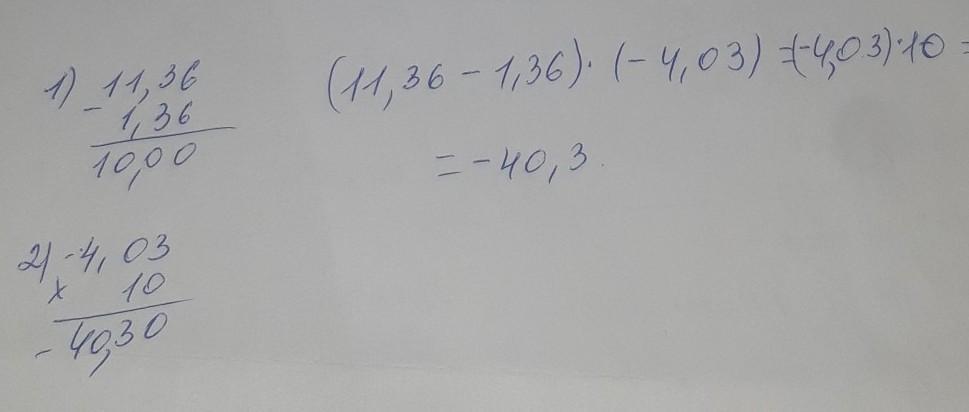 1) 11,36
- 1,36
10,00
(11,36 - 1,36) · (- 4,03) = (-4,03) · 10 =
= - 40,3.
2) -4,03
x 10
- 40,30